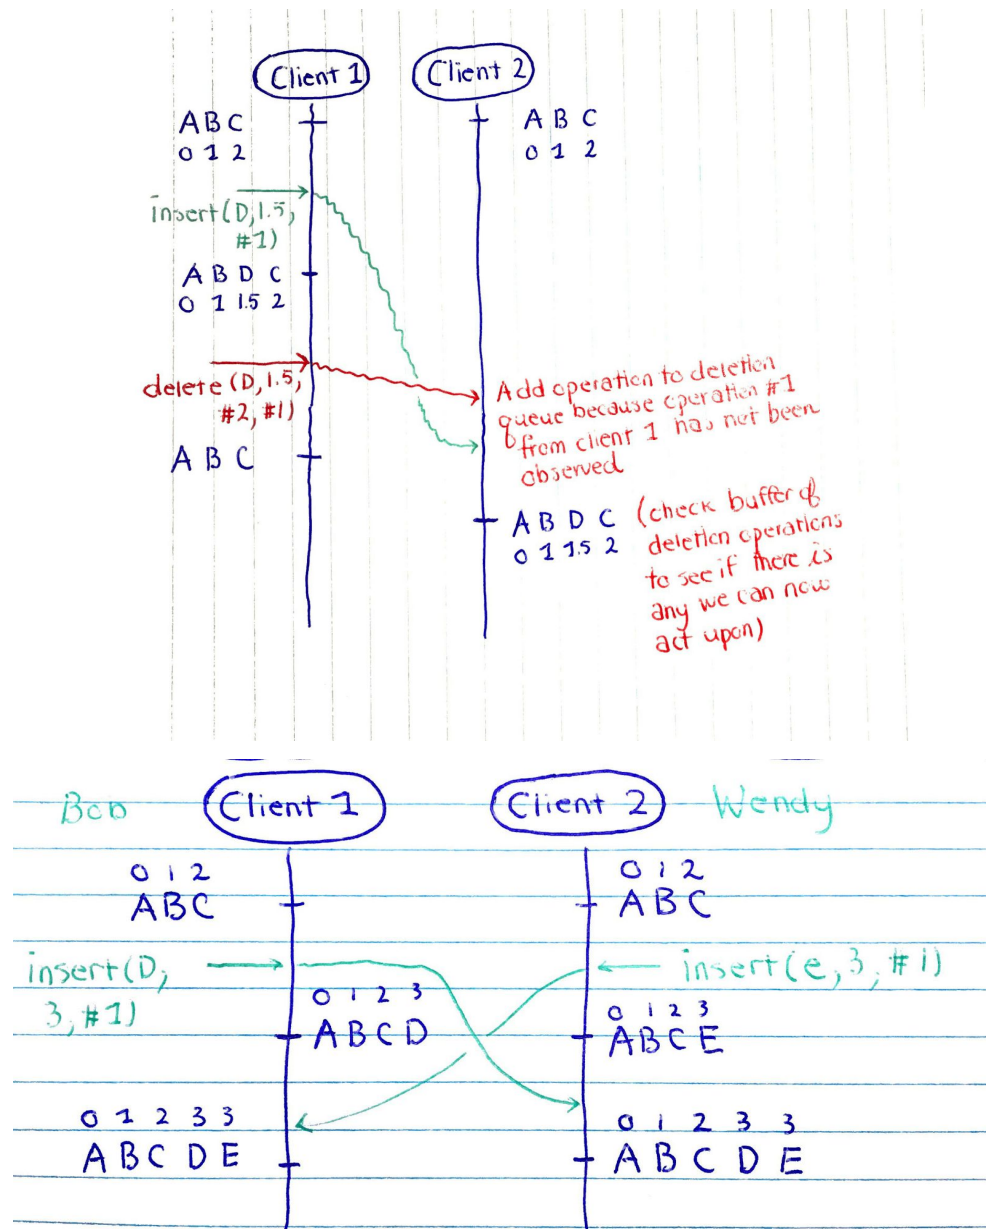 Client 1 Client 2
A B C A B C
0 1 2 0 1 2
insert(D,1.5,
#1)
A B D C
0 1 1.5 2
delete (D,1.5,
#2, #1)
A B C
Add operation to deletion
queue because operation #1
from client 1 has not been
observed
A B D C
0 1 1.5 2
(check buffer of
deletion operations
to see if there is
any we can now
act upon)
Bob Client 1 Client 2 Wendy
0 1 2 0 1 2
ABC ABC
insert(D,
3,#1)
insert(e,3,#1)
0 1 2 3 0 1 2 3
ABCD ABCE
0 1 2 3 3 0 1 2 3 3
A B C D E A B C D E